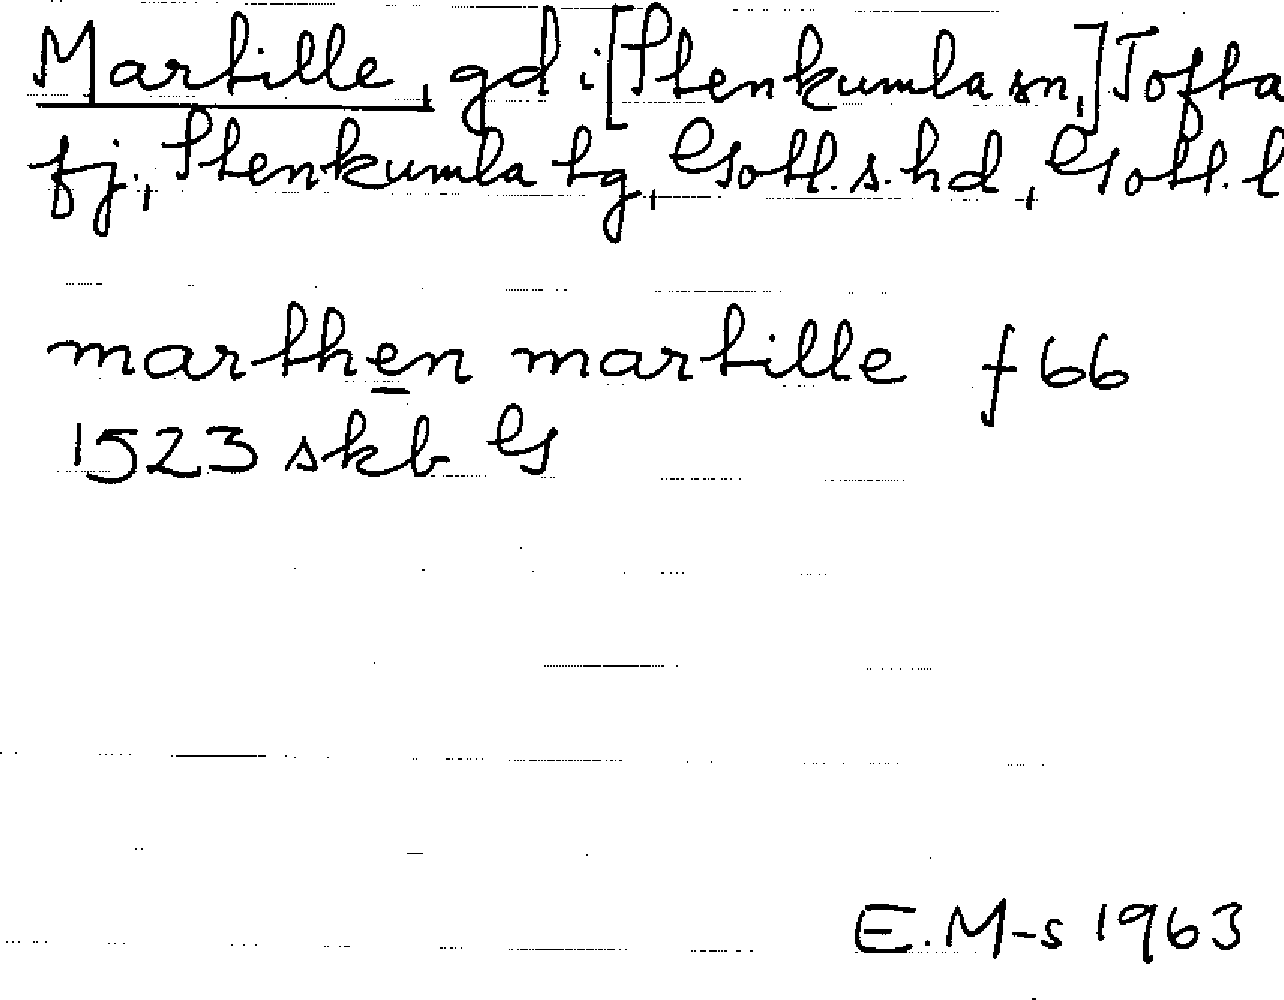 Martille, gd i [Stenkumla sn,] Tofta
fj., Stenkumla tg, Gotl. s. hd, Gotl. l
marthen martille f 66
1523 skb G
E. M-s 1963